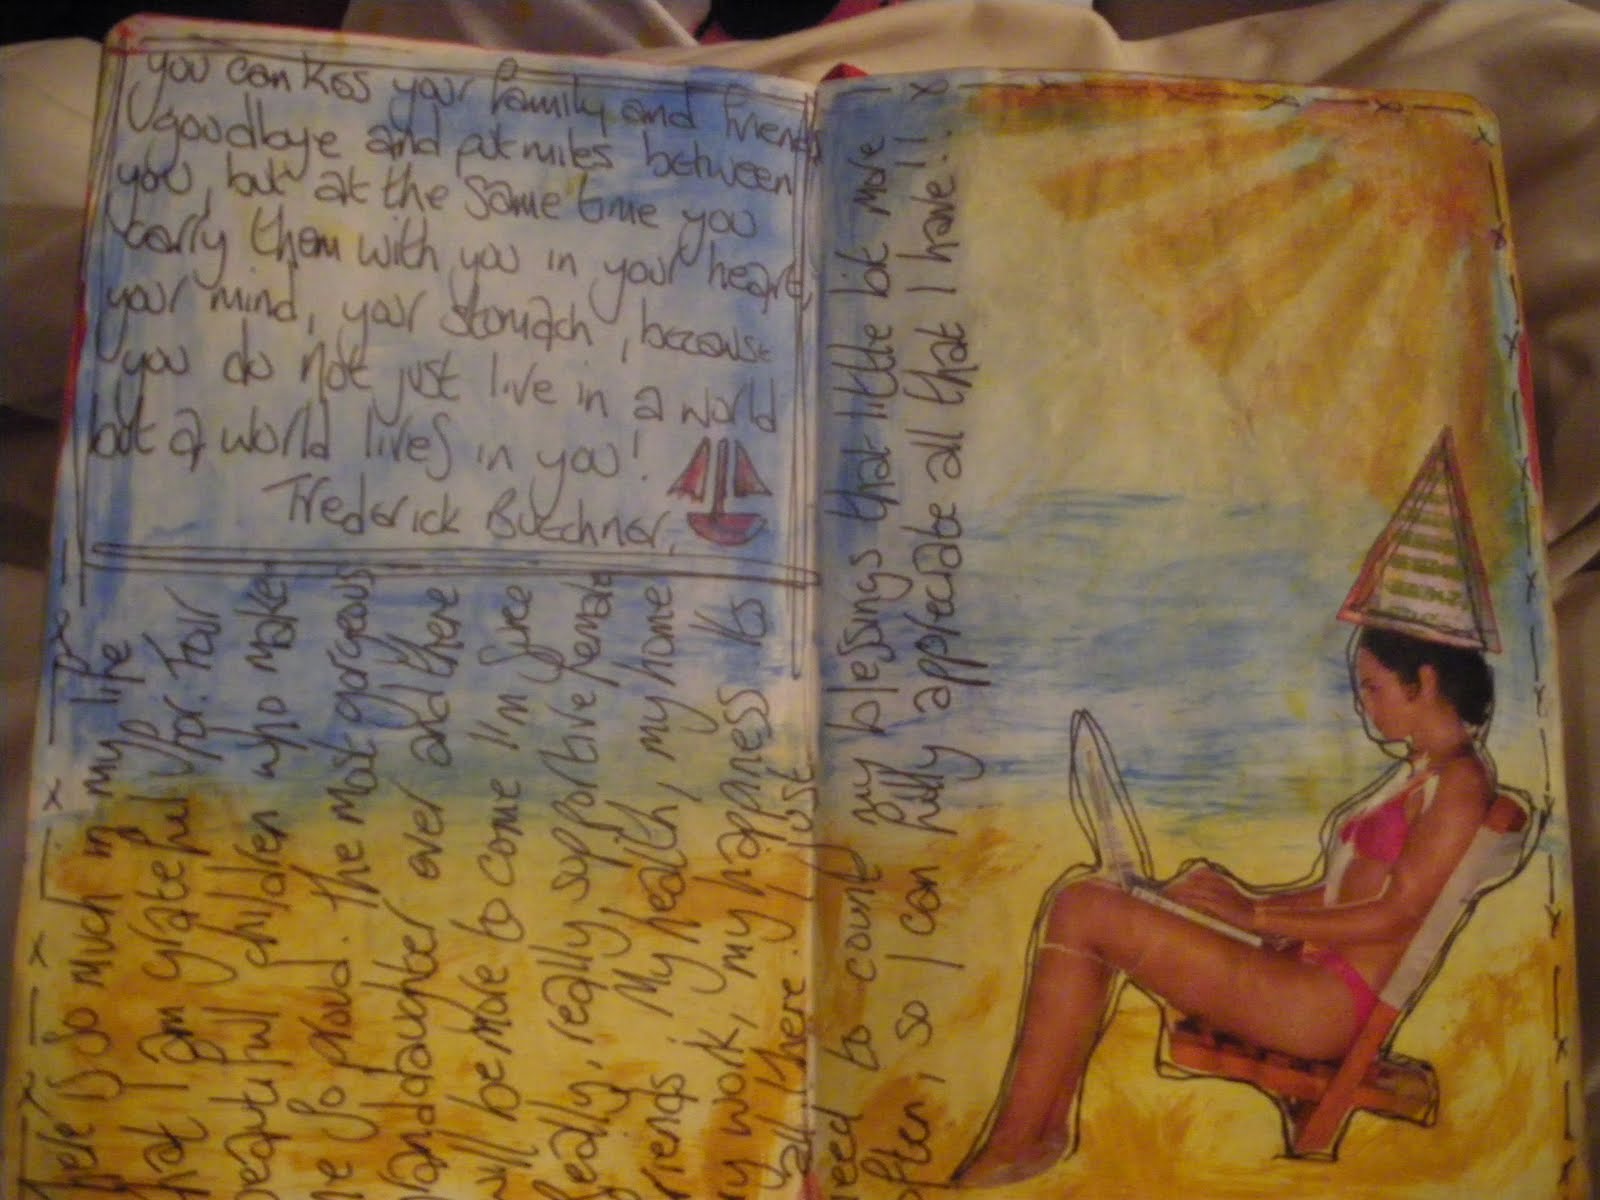 you can kiss your family and friends
goodbye and put miles between
you, but at the same time you
carry them with you in your heart,
your mind, your stomach, because
you do not just live in a world
but a world lives in you!
Frederick Buechner.
there is so much in my life
that I am grateful for. Four
beautiful children who make
me so proud. The most gorgeous
granddaughter ever and there
will be more to come I'm sure
Really, really supportive female
friends, my health, my home
my work, my happiness Its
all there. I just
need to count my blessings that little bit more
often, so I can fully appreciate all that I have!!